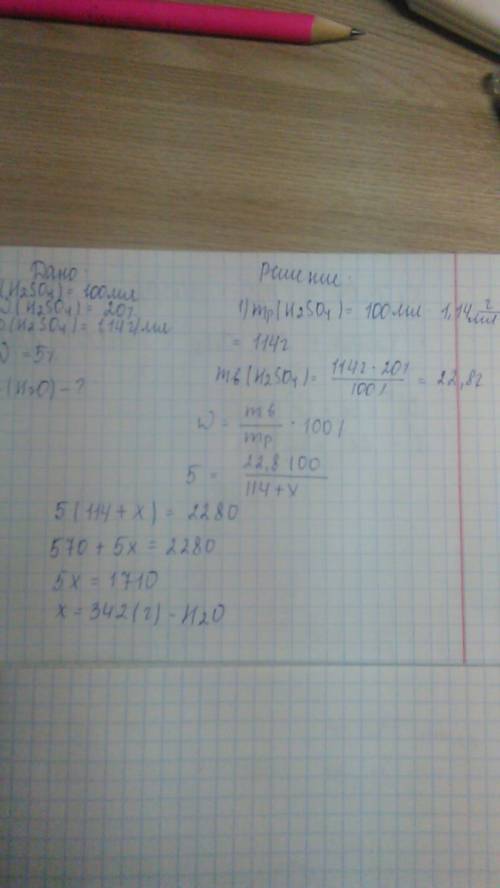 Дано:
(H₂SO₄) = 100мл
ω(H₂SO₄) = 20%
(H₂SO₄) = 1,14г/мл
= 5%
(H₂O) - ?
Решение:
1) mp(H₂SO₄) = 100мл 1,14 г/мл
= 114г
mв(H₂SO₄) = 114г · 20% / 100% = 22,8г
ω = mв / mp · 100%
5 = 22,8 100 / 114 + x
5(114 + x) = 2280
570 + 5x = 2280
5x = 1710
x = 342(г) - H₂O